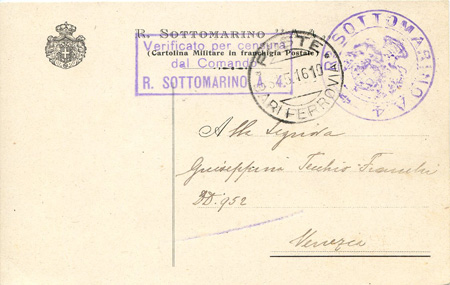 R. SOTTOMARINO "A
(Cartolina Militare in franchigia Postale)
Verificato per censura
dal Comando
R. SOTTOMARINO
POSTE
16
BARI FERROVIA
SOTTOMARINO A 4
Alla Signora
Giuseppina Tecchio
D.D. 952
Venezia